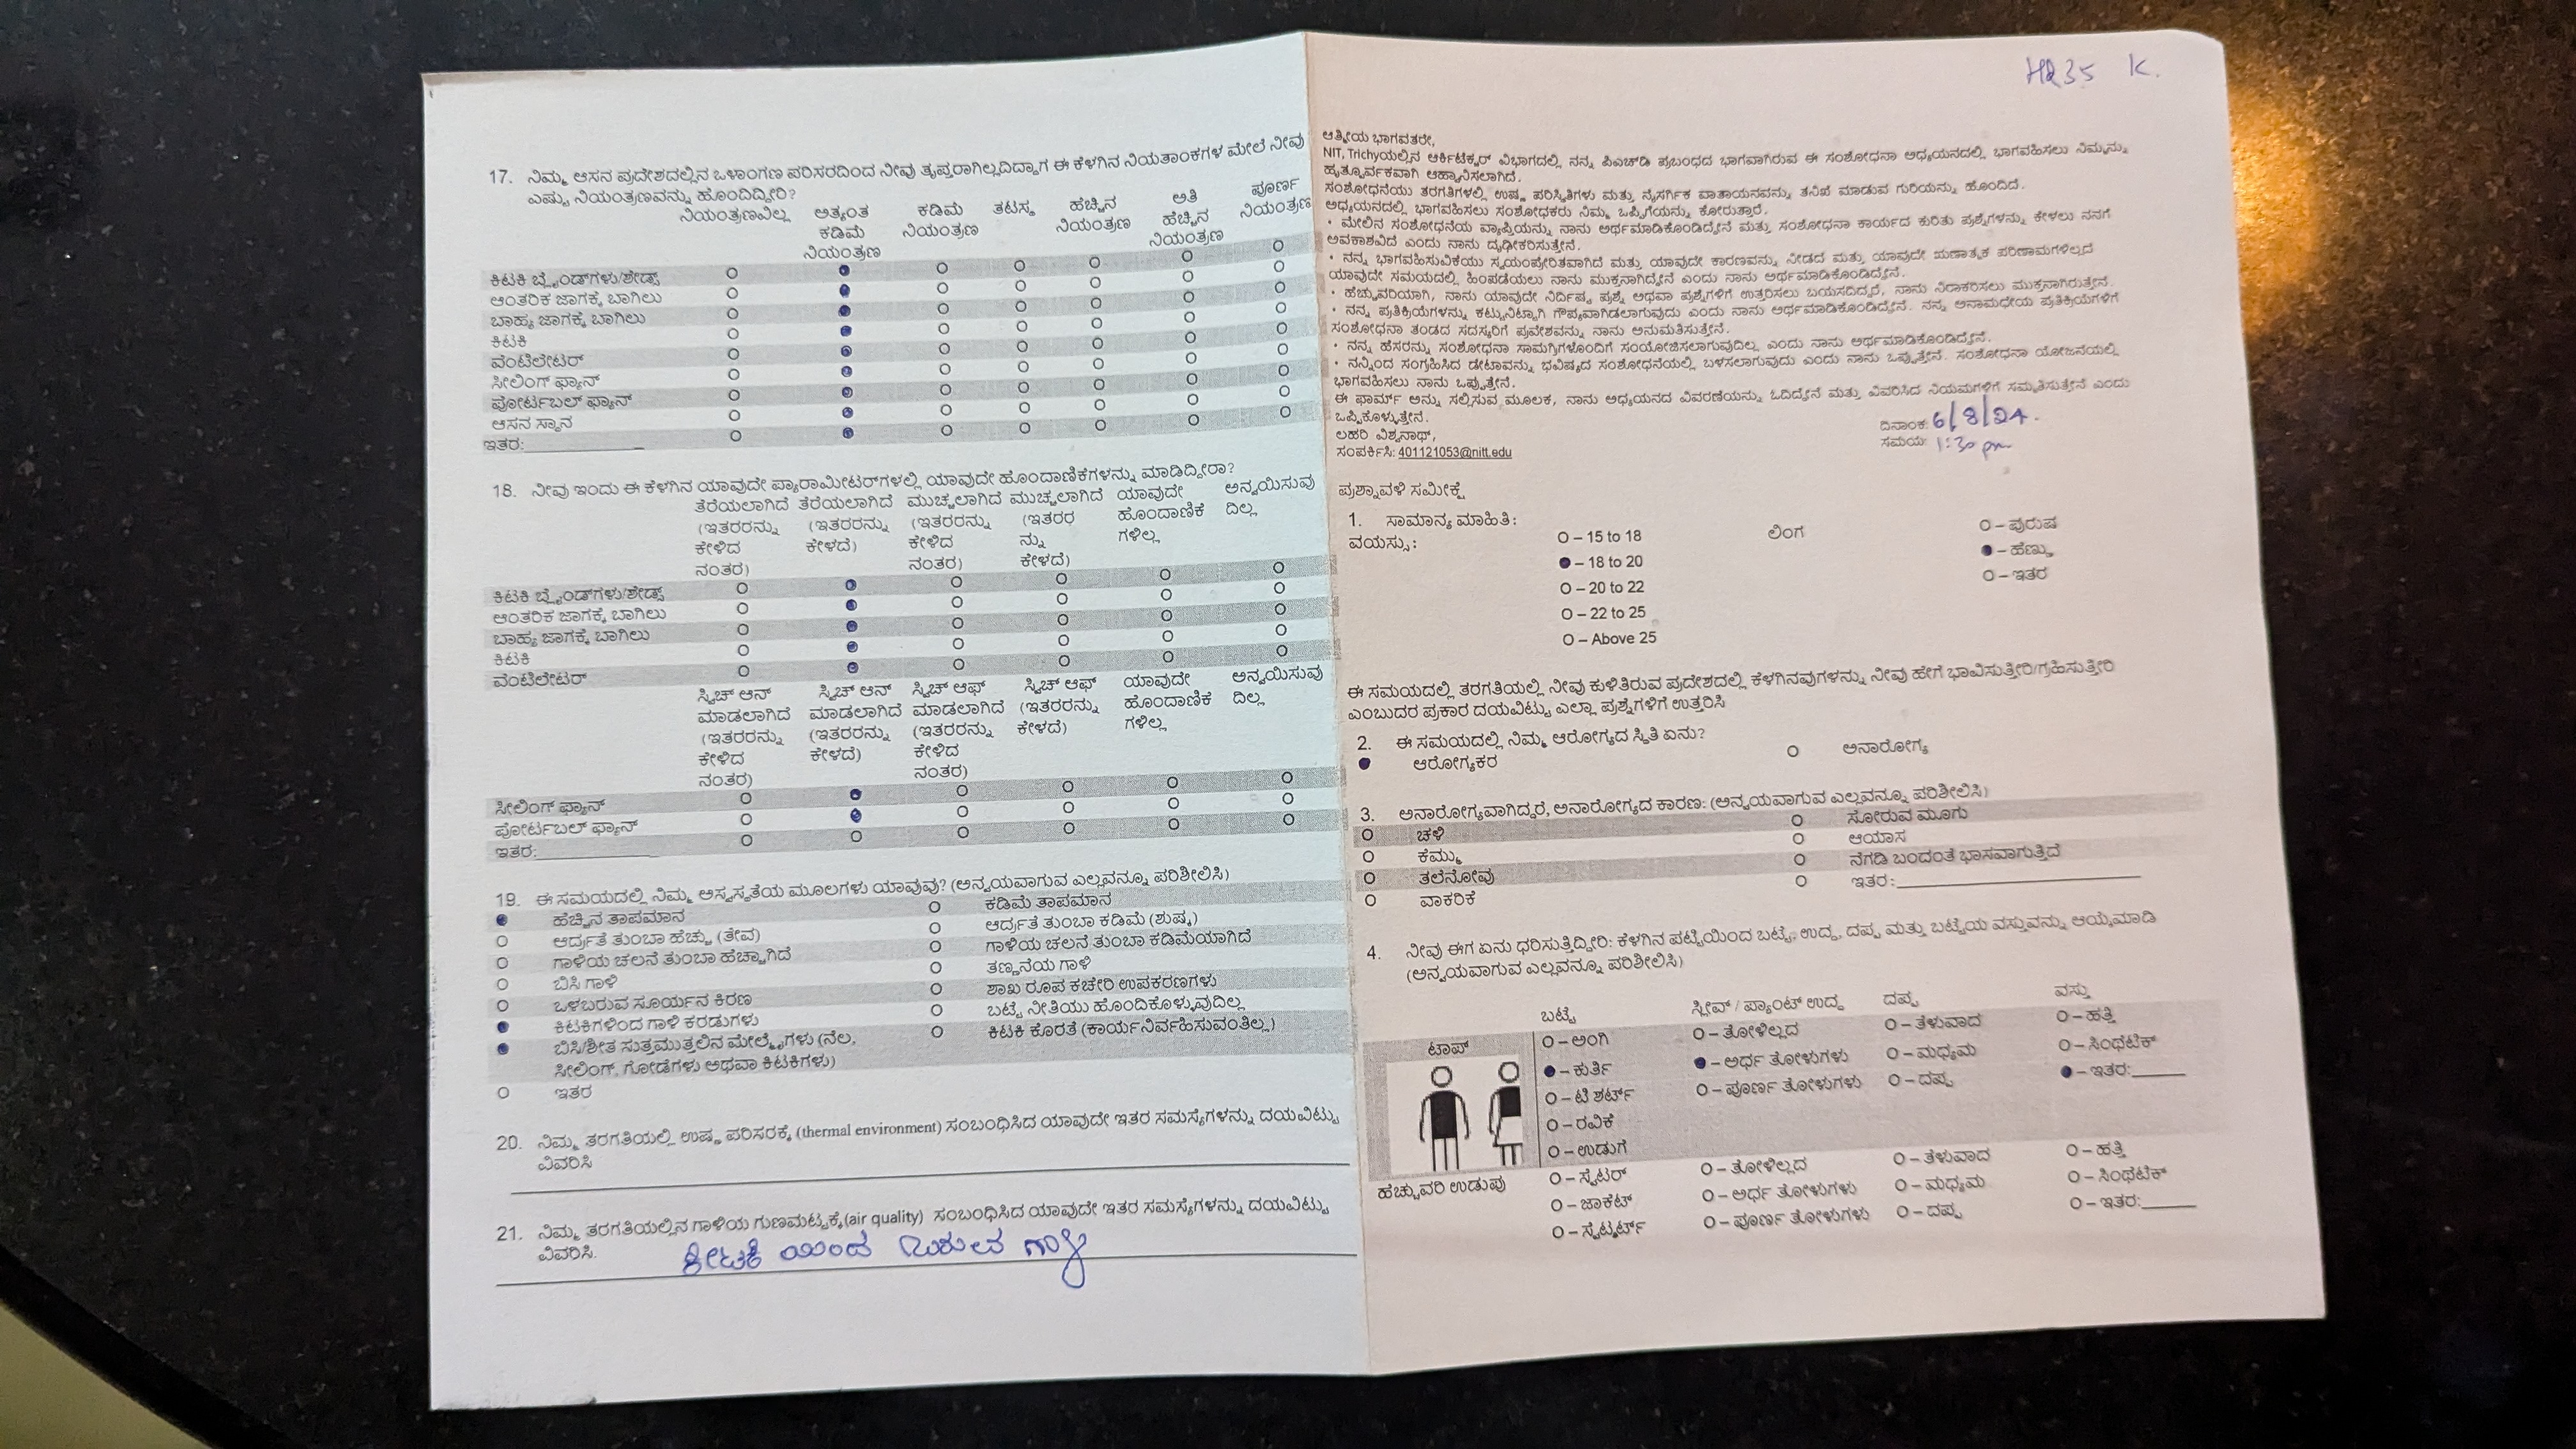 17. ನಿಮ್ಮ ಆಸನ ಪ್ರದೇಶದಲ್ಲಿನ ಒಳಾಂಗಣ ಪರಿಸರದಿಂದ ನೀವು ತೃಪ್ತರಾಗಿಲ್ಲದಿದ್ದಾಗ ಈ ಕೆಳಗಿನ ನಿಯತಾಂಕಗಳ ಮೇಲೆ ನೀವು
ಎಷ್ಟು ನಿಯಂತ್ರಣವನ್ನು ಹೊಂದಿದ್ದೀರಿ?
ನಿಯಂತ್ರಣವಿಲ್ಲ ಅತ್ಯಂತ ಕಡಿಮೆ ನಿಯಂತ್ರಣ ಕಡಿಮೆ ನಿಯಂತ್ರಣ ತಟಸ್ಥ ಹೆಚ್ಚಿನ ನಿಯಂತ್ರಣ ಅತಿ ಹೆಚ್ಚಿನ ನಿಯಂತ್ರಣ ಪೂರ್ಣ ನಿಯಂತ್ರಣ
ಕಿಟಕಿ ಬ್ಲೈಂಡ್‌ಗಳು/ಶೇಡ್ಸ್
ಆಂತರಿಕ ಜಾಗಕ್ಕೆ ಬಾಗಿಲು
ಬಾಹ್ಯ ಜಾಗಕ್ಕೆ ಬಾಗಿಲು
ಕಿಟಕಿ
ವೆಂಟಿಲೇಟರ್
ಸೀಲಿಂಗ್ ಫ್ಯಾನ್
ಪೋರ್ಟಬಲ್ ಫ್ಯಾನ್
ಆಸನ ಸ್ಥಾನ
ಇತರ:
18. ನೀವು ಇಂದು ಈ ಕೆಳಗಿನ ಯಾವುದೇ ಪ್ಯಾರಾಮೀಟರ್‌ಗಳಲ್ಲಿ ಯಾವುದೇ ಹೊಂದಾಣಿಕೆಗಳನ್ನು ಮಾಡಿದ್ದೀರಾ?
ತೆರೆಯಲಾಗಿದೆ (ಇತರರನ್ನು ಕೇಳಿದ ನಂತರ) ತೆರೆಯಲಾಗಿದೆ (ಇತರರನ್ನು ಕೇಳದೆ) ಮುಚ್ಚಲಾಗಿದೆ (ಇತರರನ್ನು ಕೇಳಿದ ನಂತರ) ಮುಚ್ಚಲಾಗಿದೆ (ಇತರರನ್ನು ಕೇಳದೆ) ಯಾವುದೇ ಹೊಂದಾಣಿಕೆಗಳಿಲ್ಲ ಅನ್ವಯಿಸುವುದಿಲ್ಲ
ಕಿಟಕಿ ಬ್ಲೈಂಡ್‌ಗಳು/ಶೇಡ್ಸ್
ಆಂತರಿಕ ಜಾಗಕ್ಕೆ ಬಾಗಿಲು
ಬಾಹ್ಯ ಜಾಗಕ್ಕೆ ಬಾಗಿಲು
ಕಿಟಕಿ
ವೆಂಟಿಲೇಟರ್
ಸ್ವಿಚ್ ಆನ್ ಮಾಡಲಾಗಿದೆ (ಇತರರನ್ನು ಕೇಳಿದ ನಂತರ) ಸ್ವಿಚ್ ಆನ್ ಮಾಡಲಾಗಿದೆ (ಇತರರನ್ನು ಕೇಳದೆ) ಸ್ವಿಚ್ ಆಫ್ ಮಾಡಲಾಗಿದೆ (ಇತರರನ್ನು ಕೇಳಿದ ನಂತರ) ಸ್ವಿಚ್ ಆಫ್ (ಇತರರನ್ನು ಕೇಳದೆ) ಯಾವುದೇ ಹೊಂದಾಣಿಕೆಗಳಿಲ್ಲ ಅನ್ವಯಿಸುವುದಿಲ್ಲ
ಸೀಲಿಂಗ್ ಫ್ಯಾನ್
ಪೋರ್ಟಬಲ್ ಫ್ಯಾನ್
ಇತರ:
19. ಈ ಸಮಯದಲ್ಲಿ ನಿಮ್ಮ ಅಸ್ವಸ್ಥತೆಯ ಮೂಲಗಳು ಯಾವುವು? (ಅನ್ವಯವಾಗುವ ಎಲ್ಲವನ್ನೂ ಪರಿಶೀಲಿಸಿ)
ಹೆಚ್ಚಿನ ತಾಪಮಾನ ಕಡಿಮೆ ತಾಪಮಾನ
ಆರ್ದ್ರತೆ ತುಂಬಾ ಹೆಚ್ಚು (ತೇವ) ಆರ್ದ್ರತೆ ತುಂಬಾ ಕಡಿಮೆ (ಶುಷ್ಕ)
ಗಾಳಿಯ ಚಲನೆ ತುಂಬಾ ಹೆಚ್ಚಾಗಿದೆ ಗಾಳಿಯ ಚಲನೆ ತುಂಬಾ ಕಡಿಮೆಯಾಗಿದೆ
ಬಿಸಿ ಗಾಳಿ ತಣ್ಣನೆಯ ಗಾಳಿ
ಒಳಬರುವ ಸೂರ್ಯನ ಕಿರಣ ಶಾಖ ರೂಪ ಕಚೇರಿ ಉಪಕರಣಗಳು
ಕಿಟಕಿಗಳಿಂದ ಗಾಳಿ ಕರಡುಗಳು ಬಟ್ಟೆ ನೀತಿಯು ಹೊಂದಿಕೊಳ್ಳುವುದಿಲ್ಲ
ಬಿಸಿ/ಶೀತ ಸುತ್ತಮುತ್ತಲಿನ ಮೇಲ್ಮೈಗಳು (ನೆಲ, ಕಿಟಕಿ ಕೊರತೆ (ಕಾರ್ಯನಿರ್ವಹಿಸುವಂತಿಲ್ಲ)
ಸೀಲಿಂಗ್, ಗೋಡೆಗಳು ಅಥವಾ ಕಿಟಕಿಗಳು)
ಇತರ
20. ನಿಮ್ಮ ತರಗತಿಯಲ್ಲಿ ಉಷ್ಣ ಪರಿಸರಕ್ಕೆ (thermal environment) ಸಂಬಂಧಿಸಿದ ಯಾವುದೇ ಇತರ ಸಮಸ್ಯೆಗಳನ್ನು ದಯವಿಟ್ಟು
ವಿವರಿಸಿ
21. ನಿಮ್ಮ ತರಗತಿಯಲ್ಲಿನ ಗಾಳಿಯ ಗುಣಮಟ್ಟಕ್ಕೆ (air quality) ಸಂಬಂಧಿಸಿದ ಯಾವುದೇ ಇತರ ಸಮಸ್ಯೆಗಳನ್ನು ದಯವಿಟ್ಟು
ವಿವರಿಸಿ.
ಕೀಟಕಿ ಯಿಂದ ಬರುವ ಗಾಳಿ
HR35 K.
ಆತ್ಮೀಯ ಭಾಗವತರೇ,
NIT, Trichyಯಲ್ಲಿನ ಆರ್ಕಿಟೆಕ್ಚರ್ ವಿಭಾಗದಲ್ಲಿ ನನ್ನ ಪಿಎಚ್‌ಡಿ ಪ್ರಬಂಧದ ಭಾಗವಾಗಿರುವ ಈ ಸಂಶೋಧನಾ ಅಧ್ಯಯನದಲ್ಲಿ ಭಾಗವಹಿಸಲು ನಿಮ್ಮನ್ನು
ಹೃತ್ಪೂರ್ವಕವಾಗಿ ಆಹ್ವಾನಿಸಲಾಗಿದೆ.
ಸಂಶೋಧನೆಯು ತರಗತಿಗಳಲ್ಲಿ ಉಷ್ಣ ಪರಿಸ್ಥಿತಿಗಳು ಮತ್ತು ನೈಸರ್ಗಿಕ ವಾತಾಯನವನ್ನು ತನಿಖೆ ಮಾಡುವ ಗುರಿಯನ್ನು ಹೊಂದಿದೆ.
ಅಧ್ಯಯನದಲ್ಲಿ ಭಾಗವಹಿಸಲು ಸಂಶೋಧಕರು ನಿಮ್ಮ ಒಪ್ಪಿಗೆಯನ್ನು ಕೋರುತ್ತಾರೆ.
• ಮೇಲಿನ ಸಂಶೋಧನೆಯ ವ್ಯಾಪ್ತಿಯನ್ನು ನಾನು ಅರ್ಥಮಾಡಿಕೊಂಡಿದ್ದೇನೆ ಮತ್ತು ಸಂಶೋಧನಾ ಕಾರ್ಯದ ಕುರಿತು ಪ್ರಶ್ನೆಗಳನ್ನು ಕೇಳಲು ನನಗೆ
ಅವಕಾಶವಿದೆ ಎಂದು ನಾನು ದೃಢೀಕರಿಸುತ್ತೇನೆ.
• ನನ್ನ ಭಾಗವಹಿಸುವಿಕೆಯು ಸ್ವಯಂಪ್ರೇರಿತವಾಗಿದೆ ಮತ್ತು ಯಾವುದೇ ಕಾರಣವನ್ನು ನೀಡದೆ ಮತ್ತು ಯಾವುದೇ ಋಣಾತ್ಮಕ ಪರಿಣಾಮಗಳಿಲ್ಲದೆ
ಯಾವುದೇ ಸಮಯದಲ್ಲಿ ಹಿಂಪಡೆಯಲು ನಾನು ಮುಕ್ತನಾಗಿದ್ದೇನೆ ಎಂದು ನಾನು ಅರ್ಥಮಾಡಿಕೊಂಡಿದ್ದೇನೆ.
• ಹೆಚ್ಚುವರಿಯಾಗಿ, ನಾನು ಯಾವುದೇ ನಿರ್ದಿಷ್ಟ ಪ್ರಶ್ನೆ ಅಥವಾ ಪ್ರಶ್ನೆಗಳಿಗೆ ಉತ್ತರಿಸಲು ಬಯಸದಿದ್ದರೆ, ನಾನು ನಿರಾಕರಿಸಲು ಮುಕ್ತನಾಗಿರುತ್ತೇನೆ.
• ನನ್ನ ಪ್ರತಿಕ್ರಿಯೆಗಳನ್ನು ಕಟ್ಟುನಿಟ್ಟಾಗಿ ಗೌಪ್ಯವಾಗಿಡಲಾಗುವುದು ಎಂದು ನಾನು ಅರ್ಥಮಾಡಿಕೊಂಡಿದ್ದೇನೆ. ನನ್ನ ಅನಾಮಧೇಯ ಪ್ರತಿಕ್ರಿಯೆಗಳಿಗೆ
ಸಂಶೋಧನಾ ತಂಡದ ಸದಸ್ಯರಿಗೆ ಪ್ರವೇಶವನ್ನು ನಾನು ಅನುಮತಿಸುತ್ತೇನೆ.
• ನನ್ನ ಹೆಸರನ್ನು ಸಂಶೋಧನಾ ಸಾಮಗ್ರಿಗಳೊಂದಿಗೆ ಸಂಯೋಜಿಸಲಾಗುವುದಿಲ್ಲ ಎಂದು ನಾನು ಅರ್ಥಮಾಡಿಕೊಂಡಿದ್ದೇನೆ.
• ನನ್ನಿಂದ ಸಂಗ್ರಹಿಸಿದ ಡೇಟಾವನ್ನು ಭವಿಷ್ಯದ ಸಂಶೋಧನೆಯಲ್ಲಿ ಬಳಸಲಾಗುವುದು ಎಂದು ನಾನು ಒಪ್ಪುತ್ತೇನೆ. ಸಂಶೋಧನಾ ಯೋಜನೆಯಲ್ಲಿ
ಭಾಗವಹಿಸಲು ನಾನು ಒಪ್ಪುತ್ತೇನೆ.
ಈ ಫಾರ್ಮ್ ಅನ್ನು ಸಲ್ಲಿಸುವ ಮೂಲಕ, ನಾನು ಅಧ್ಯಯನದ ವಿವರಣೆಯನ್ನು ಓದಿದ್ದೇನೆ ಮತ್ತು ವಿವರಿಸಿದ ನಿಯಮಗಳಿಗೆ ಸಮ್ಮತಿಸುತ್ತೇನೆ ಎಂದು
ಒಪ್ಪಿಕೊಳ್ಳುತ್ತೇನೆ.
ಲಹರಿ ವಿಶ್ವನಾಥ್, ದಿನಾಂಕ: 6/8/24.
ಸಂಪರ್ಕಿಸಿ: 401121053@nitt.edu ಸಮಯ: 1:30 pm
ಪ್ರಶ್ನಾವಳಿ ಸಮೀಕ್ಷೆ
1. ಸಾಮಾನ್ಯ ಮಾಹಿತಿ:
ವಯಸ್ಸು: O – 15 to 18 ಲಿಂಗ O – ಪುರುಷ
– 18 to 20 – ಹೆಣ್ಣು
O – 20 to 22 O – ಇತರ
O – 22 to 25
O – Above 25
ಈ ಸಮಯದಲ್ಲಿ ತರಗತಿಯಲ್ಲಿ ನೀವು ಕುಳಿತಿರುವ ಪ್ರದೇಶದಲ್ಲಿ ಕೆಳಗಿನವುಗಳನ್ನು ನೀವು ಹೇಗೆ ಭಾವಿಸುತ್ತೀರಿ/ಗ್ರಹಿಸುತ್ತೀರಿ
ಎಂಬುದರ ಪ್ರಕಾರ ದಯವಿಟ್ಟು ಎಲ್ಲಾ ಪ್ರಶ್ನೆಗಳಿಗೆ ಉತ್ತರಿಸಿ
2. ಈ ಸಮಯದಲ್ಲಿ ನಿಮ್ಮ ಆರೋಗ್ಯದ ಸ್ಥಿತಿ ಏನು?
ಆರೋಗ್ಯಕರ O ಅನಾರೋಗ್ಯ
3. ಅನಾರೋಗ್ಯವಾಗಿದ್ದರೆ, ಅನಾರೋಗ್ಯದ ಕಾರಣ: (ಅನ್ವಯವಾಗುವ ಎಲ್ಲವನ್ನೂ ಪರಿಶೀಲಿಸಿ)
O ಚಳಿ O ಸೋರುವ ಮೂಗು
O ಕೆಮ್ಮು O ಆಯಾಸ
O ತಲೆನೋವು O ನೆಗಡಿ ಬಂದಂತೆ ಭಾಸವಾಗುತ್ತಿದೆ
O ವಾಕರಿಕೆ O ಇತರ:
4. ನೀವು ಈಗ ಏನು ಧರಿಸುತ್ತಿದ್ದೀರಿ: ಕೆಳಗಿನ ಪಟ್ಟಿಯಿಂದ ಬಟ್ಟೆ, ಉದ್ದ, ದಪ್ಪ ಮತ್ತು ಬಟ್ಟೆಯ ವಸ್ತುವನ್ನು ಆಯ್ಕೆಮಾಡಿ
(ಅನ್ವಯವಾಗುವ ಎಲ್ಲವನ್ನೂ ಪರಿಶೀಲಿಸಿ)
ಬಟ್ಟೆ ಸ್ಲೀವ್ / ಪ್ಯಾಂಟ್ ಉದ್ದ ದಪ್ಪ ವಸ್ತು
ಟಾಪ್ O – ಅಂಗಿ O – ತೋಳಿಲ್ಲದ O – ತೆಳುವಾದ O – ಹತ್ತಿ
– ಕುರ್ತಿ – ಅರ್ಧ ತೋಳುಗಳು O – ಮಧ್ಯಮ O – ಸಿಂಥೆಟಿಕ್
O – ಟಿ ಶರ್ಟ್ O – ಪೂರ್ಣ ತೋಳುಗಳು O – ದಪ್ಪ – ಇತರ:
O – ರವಿಕೆ
O – ಉಡುಗೆ
ಹೆಚ್ಚುವರಿ ಉಡುಪು O – ಸ್ವೆಟರ್ O – ತೋಳಿಲ್ಲದ O – ತೆಳುವಾದ O – ಹತ್ತಿ
O – ಜಾಕೆಟ್ O – ಅರ್ಧ ತೋಳುಗಳು O – ಮಧ್ಯಮ O – ಸಿಂಥೆಟಿಕ್
O – ಸ್ವೆಟ್ಶರ್ಟ್ O – ಪೂರ್ಣ ತೋಳುಗಳು O – ದಪ್ಪ O – ಇತರ: